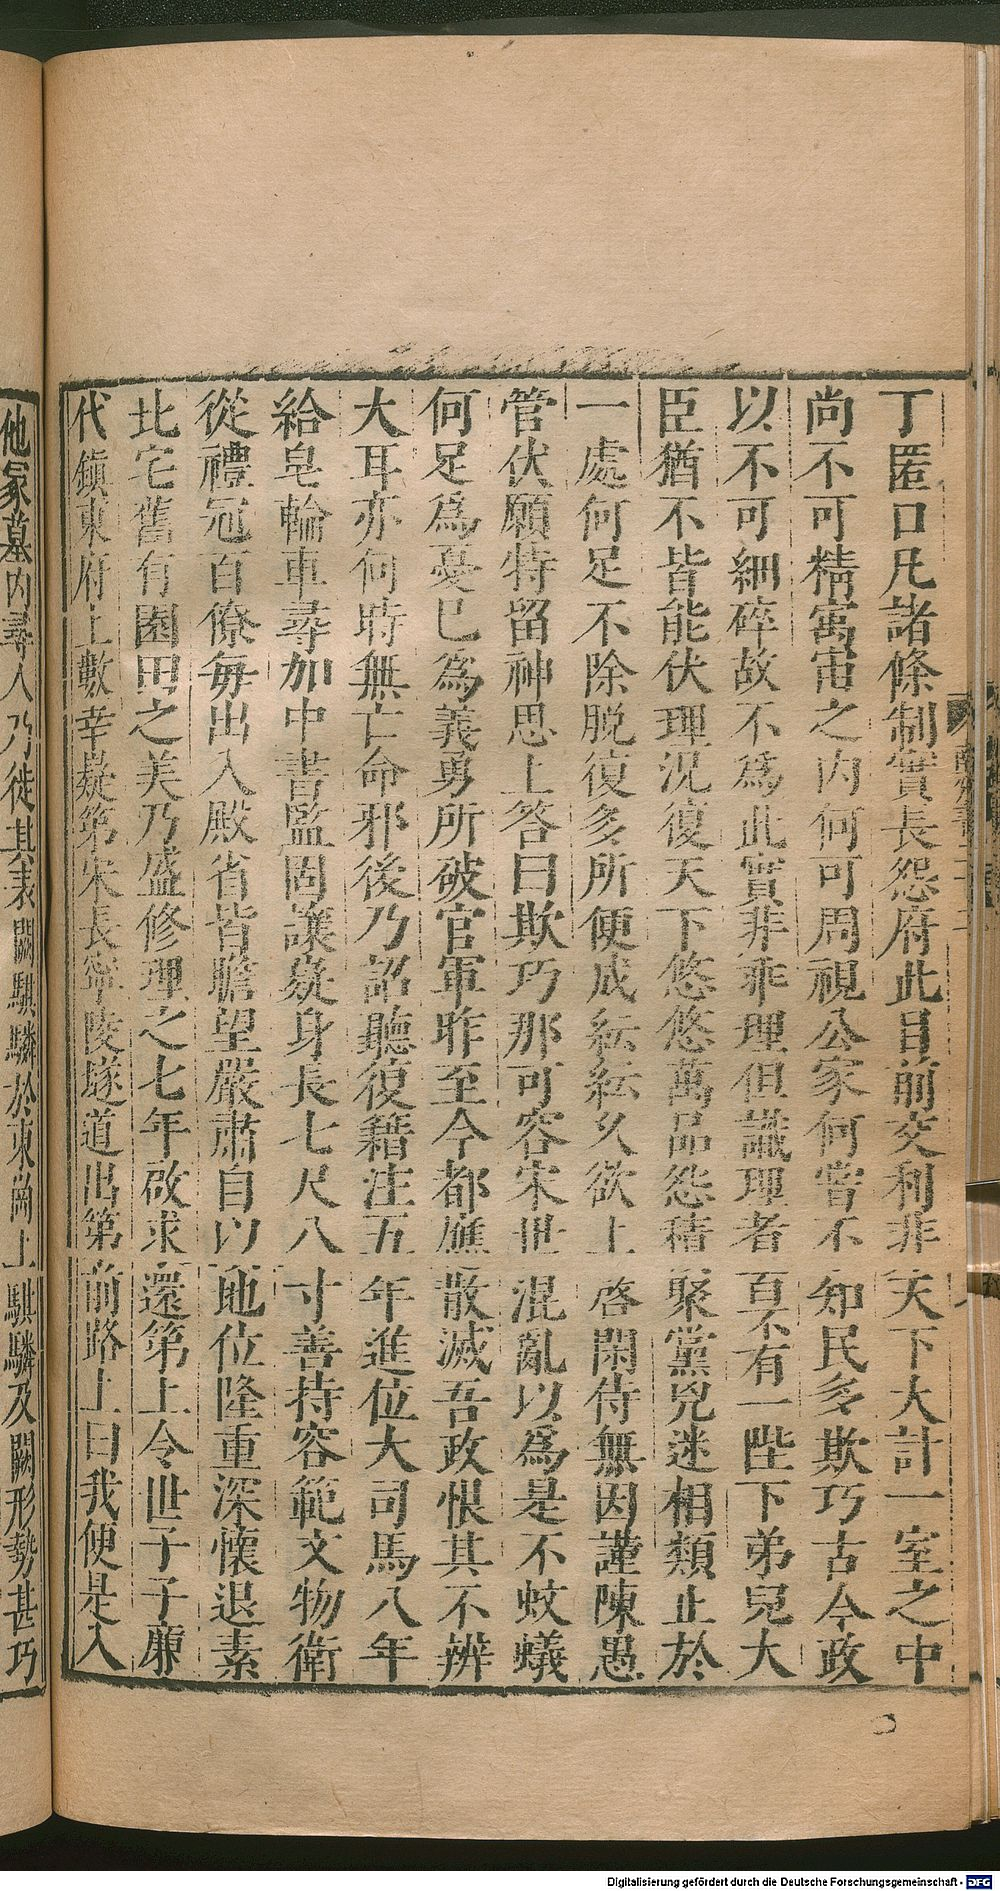 丁匿口凡諸條制實長怨府此目前交利非天下大計一室之中
尚不可精寓宙之内何可周視公家何嘗不知民多欺巧古今政
以不可細碎故不爲此實非乖理但識理者百不有一陛下弟兒大
臣猶不皆能伏理況復天下悠悠萬品怨積聚黨兇迷相類止於
一處何足不除脱復多所便成紜紜久欲上啓閑侍無因謹陳愚
管伏願特留神思上答曰欺巧那可容宋世混亂以爲是不蚊蟻
何足爲憂已爲義勇所破官軍昨至今都應散滅吾政恨其不辨
大耳亦何時無亡命邪後乃詔聽復籍注五年進位大司馬八年
給皂輪車尋加中書監固讓嶷身長七尺八寸善持容範文物衛
從禮冠百僚每出入殿省皆瞻望嚴肅自以地位隆重深懷退素
北宅舊有園田之美乃盛修理之七年啟求還第上令世子子廉
代鎮東府上數幸嶷第宋長寧陵隧道出第前路上曰我便是入
他冢墓内尋人乃徙其表闕騏驎於東崗上騏驎及闕形勢甚巧
Digitalisierung gefördert durch die Deutsche Forschungsgemeinschaft - DFG